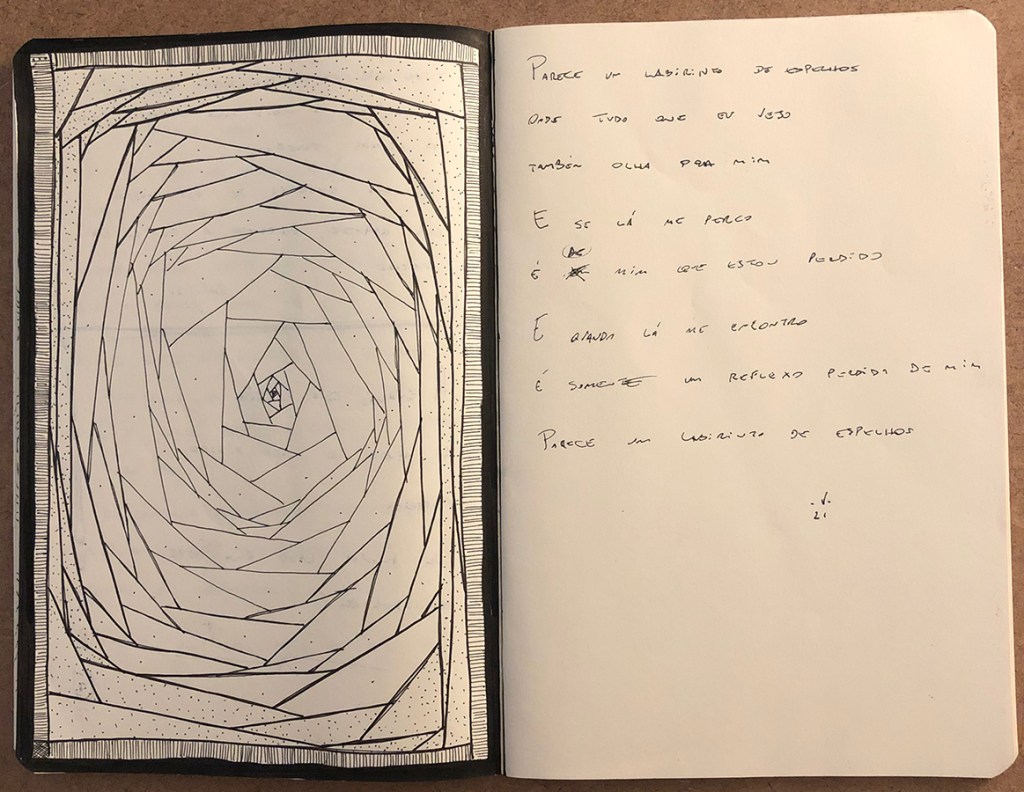 PARECE UM LABIRINTO DE ESPELHOS
ONDE TUDO QUE EU VEJO
TAMBÉM OLHA PRA MIM
E SE LÁ ME PERCO
É DE MIM QUE ESTOU PERDIDO
E QUANDO LÁ ME ENCONTRO
É SOMENTE UM REFLEXO PERDIDO DE MIM
PARECE UM LABIRINTO DE ESPELHOS
.V.
21